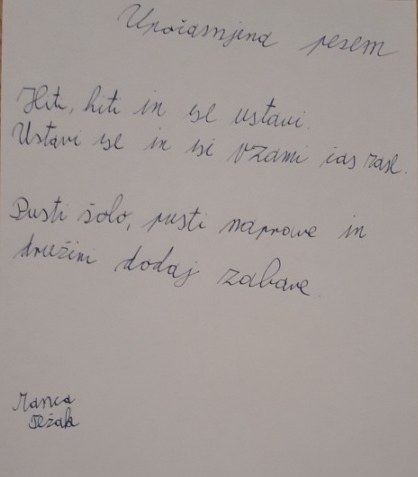 Upočasnjena pesem
Hiti, hiti in se ustavi.
Ustavi se in si vzami čas zase.
Pusti šolo, pusti naprave in
družini dodaj zabave
Manca
Težak